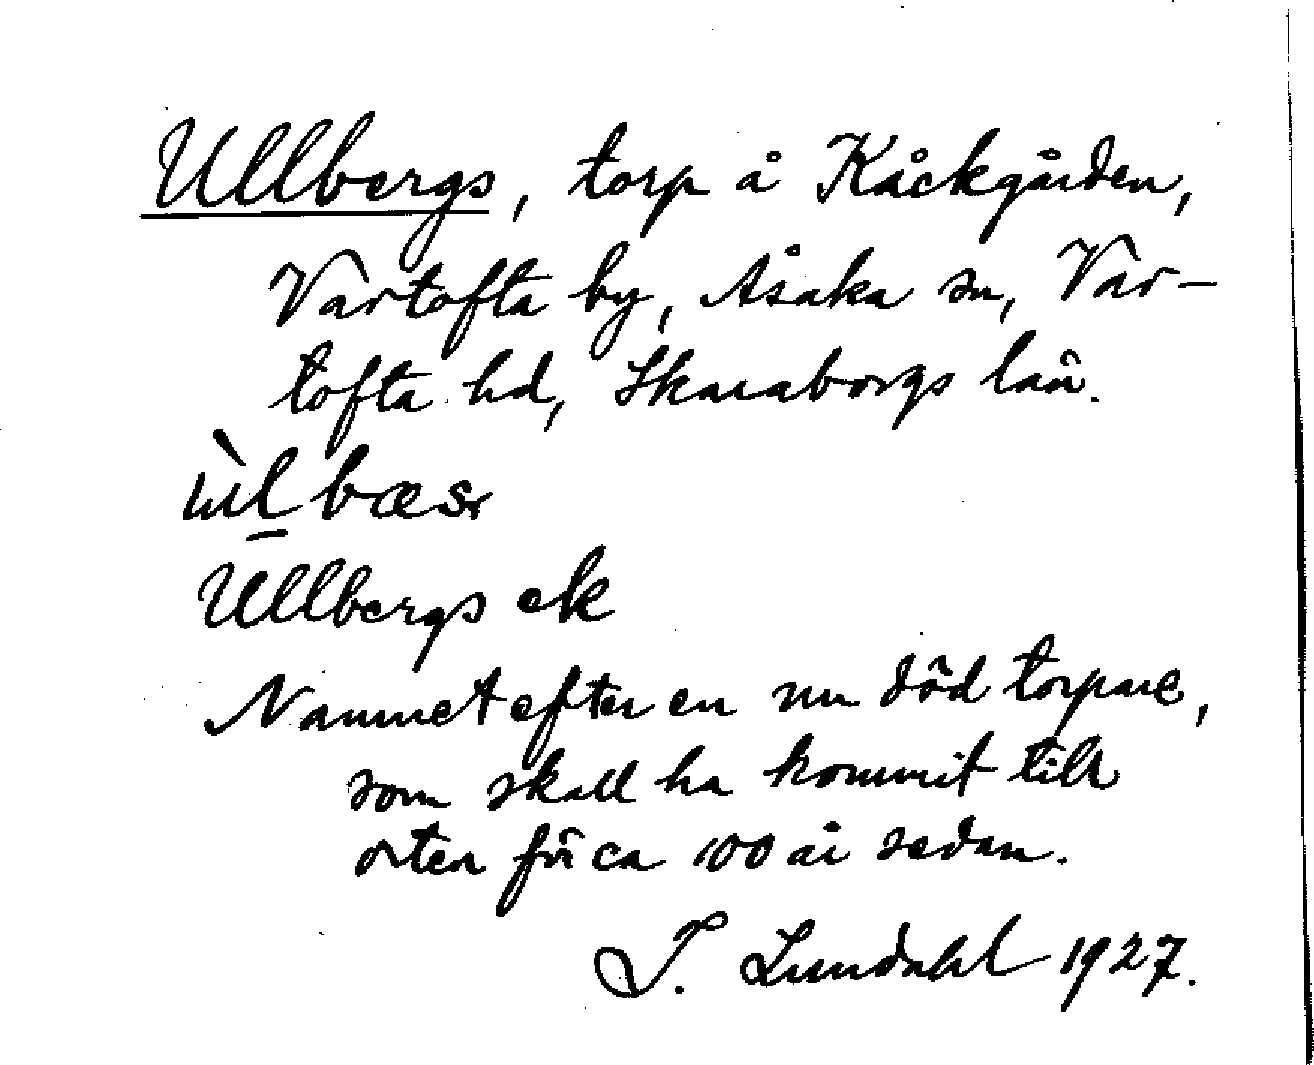 Ullbergs, torp å Kåckgården,
Vartofta by, Åsaka sn, Var-
tofta hd, Skaraborgs län.
Ullbergs ek
Namnet efter en nu död torpare,
som skall ha kommit till
orten för ca 100 år sedan.
I. Lundahl 1927.